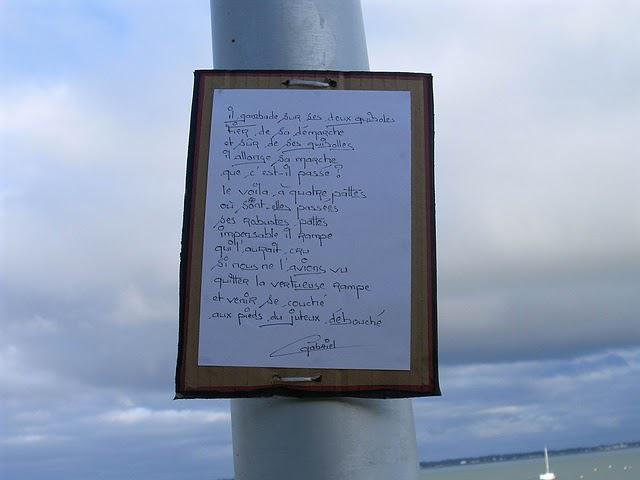 il gambade sur ses deux guiboles
fier de sa démarche
et sûr de ses guibolles
il allonge sa marche
que c'est-il passé ?
le voila à quatre pattes
où sont-elles passées
ses robustes pattes
impensable il rampe
qui l'aurait cru
si nous ne l'avions vu
quitter la vertueuse rampe
et venir se couché
aux pieds du juteux débouché
Gabriel